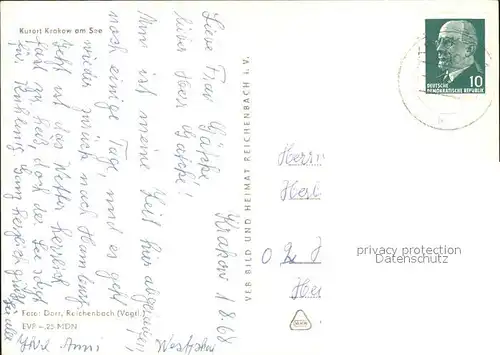 Kurort Krakow am See
Krakow 1.8.68
Liebe Frau Gätske,
lieber Herr Gätske!
Nun ist meine Zeit hier abgelaufen,
noch einige Tage, und es geht
wieder zurück nach Hamburg.
Jetzt ist das Wetter herrlich,
fast zu heiß, doch der See sorgt
für Kühlung. Ganz herzlich grüßt
Ihre Anni
Foto: Darr, Reichenbach (Vogtl.)
EVP –,25 MDN
VEB BILD UND HEIMAT REICHENBACH i. V.
10
DEUTSCHE
DEMOKRATISCHE REPUBLIK
Herrn
privacy protection
Datenschutz